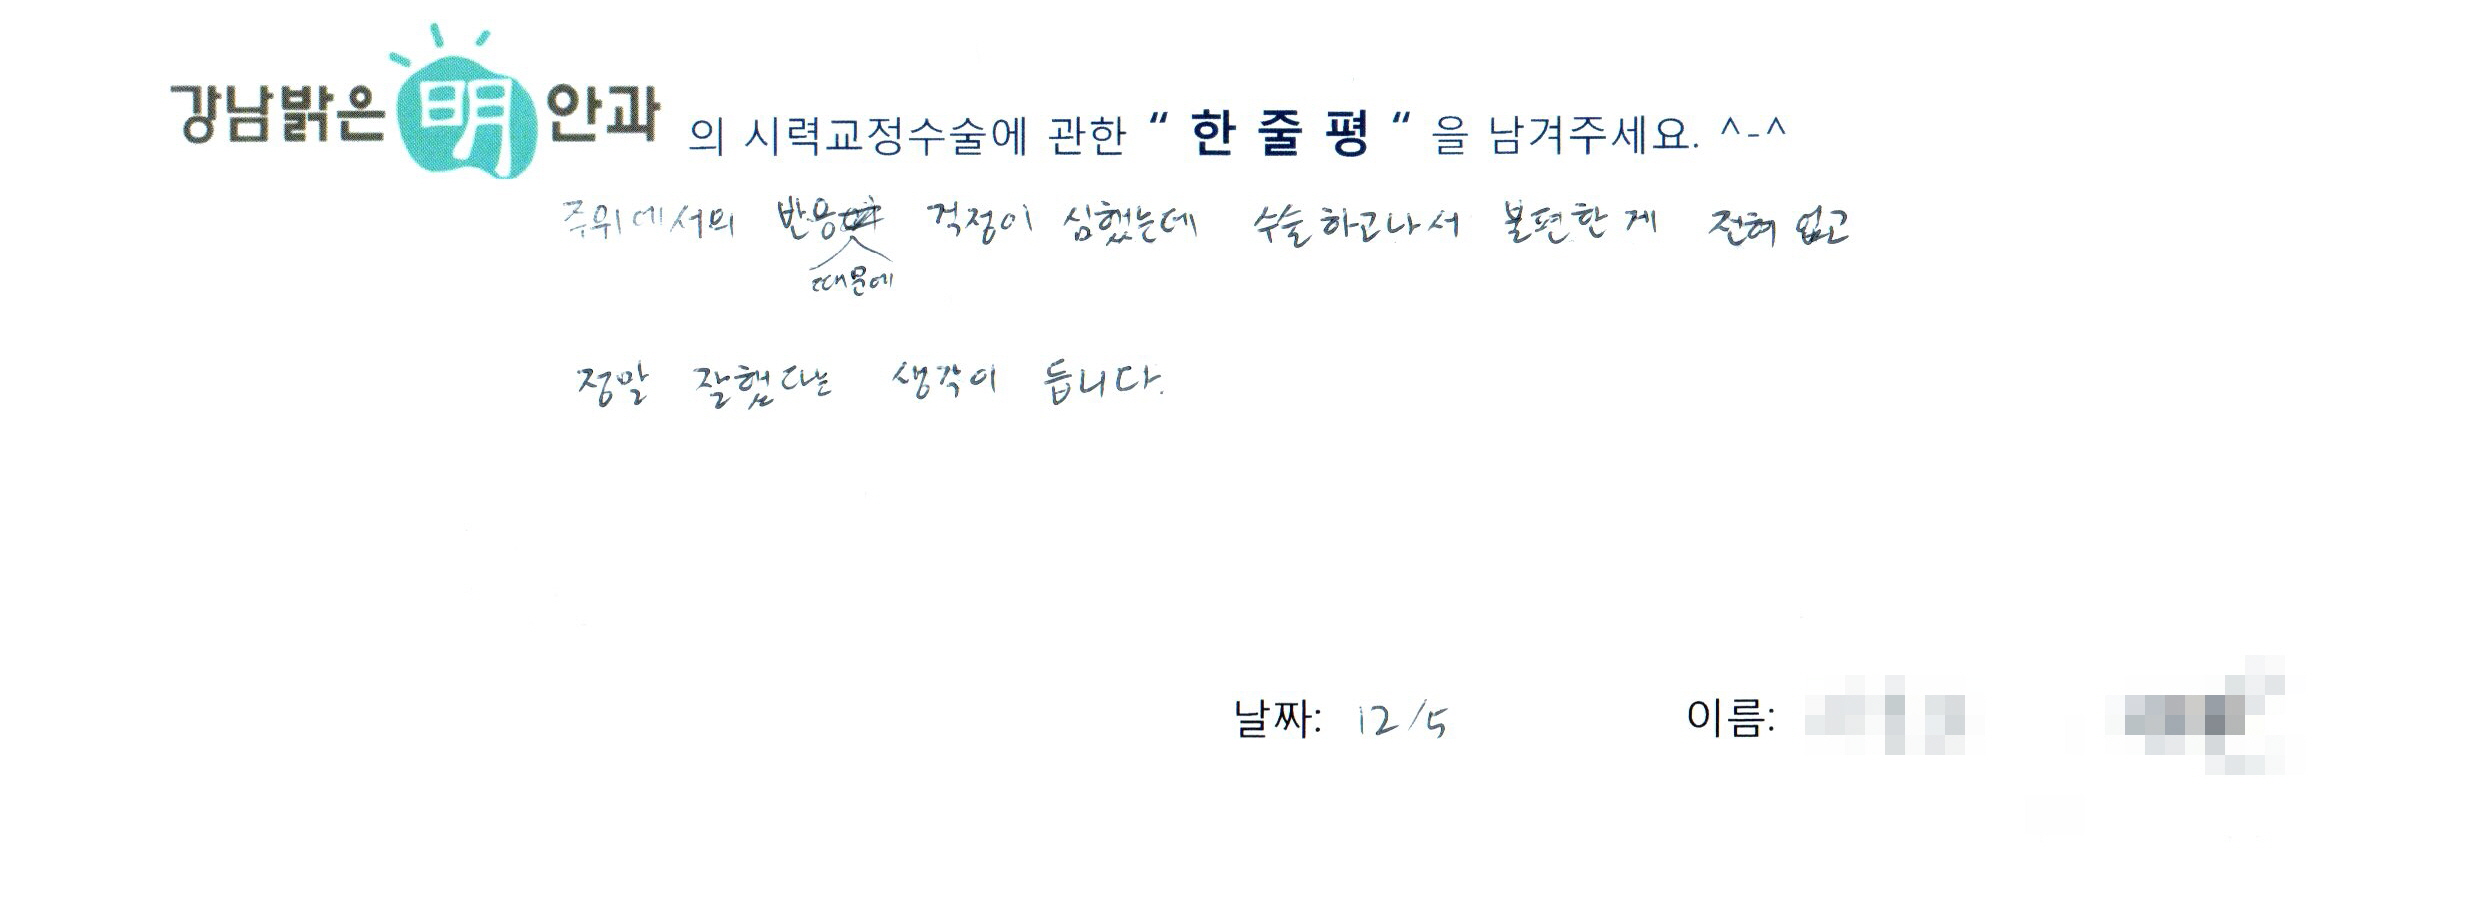 강남밝은 明 안과 의 시력교정수술에 관한 “ 한 줄 평 “ 을 남겨주세요. ^-^
주위에서의 반응 때문에 걱정이 심했는데 수술하고나서 불편한 게 전혀 없고
정말 잘했다는 생각이 듭니다.
날짜: 12/5 이름: